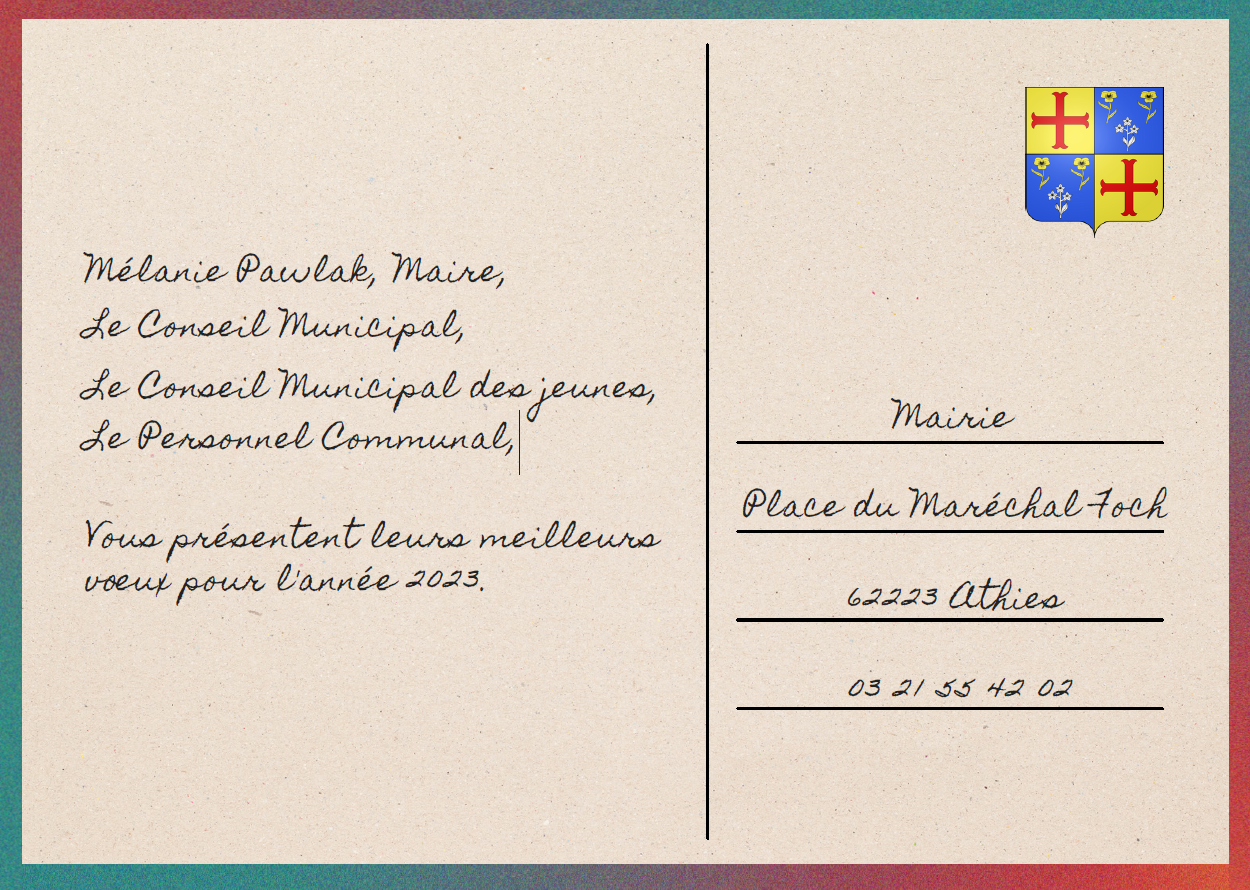 Mélanie Pawlak, Maire,
Le Conseil Municipal,
Le Conseil Municipal des jeunes,
Le Personnel Communal,
Vous présentent leurs meilleurs
vœux pour l'année 2023.
Mairie
Place du Maréchal Foch
62223 Athies
03 21 55 42 02